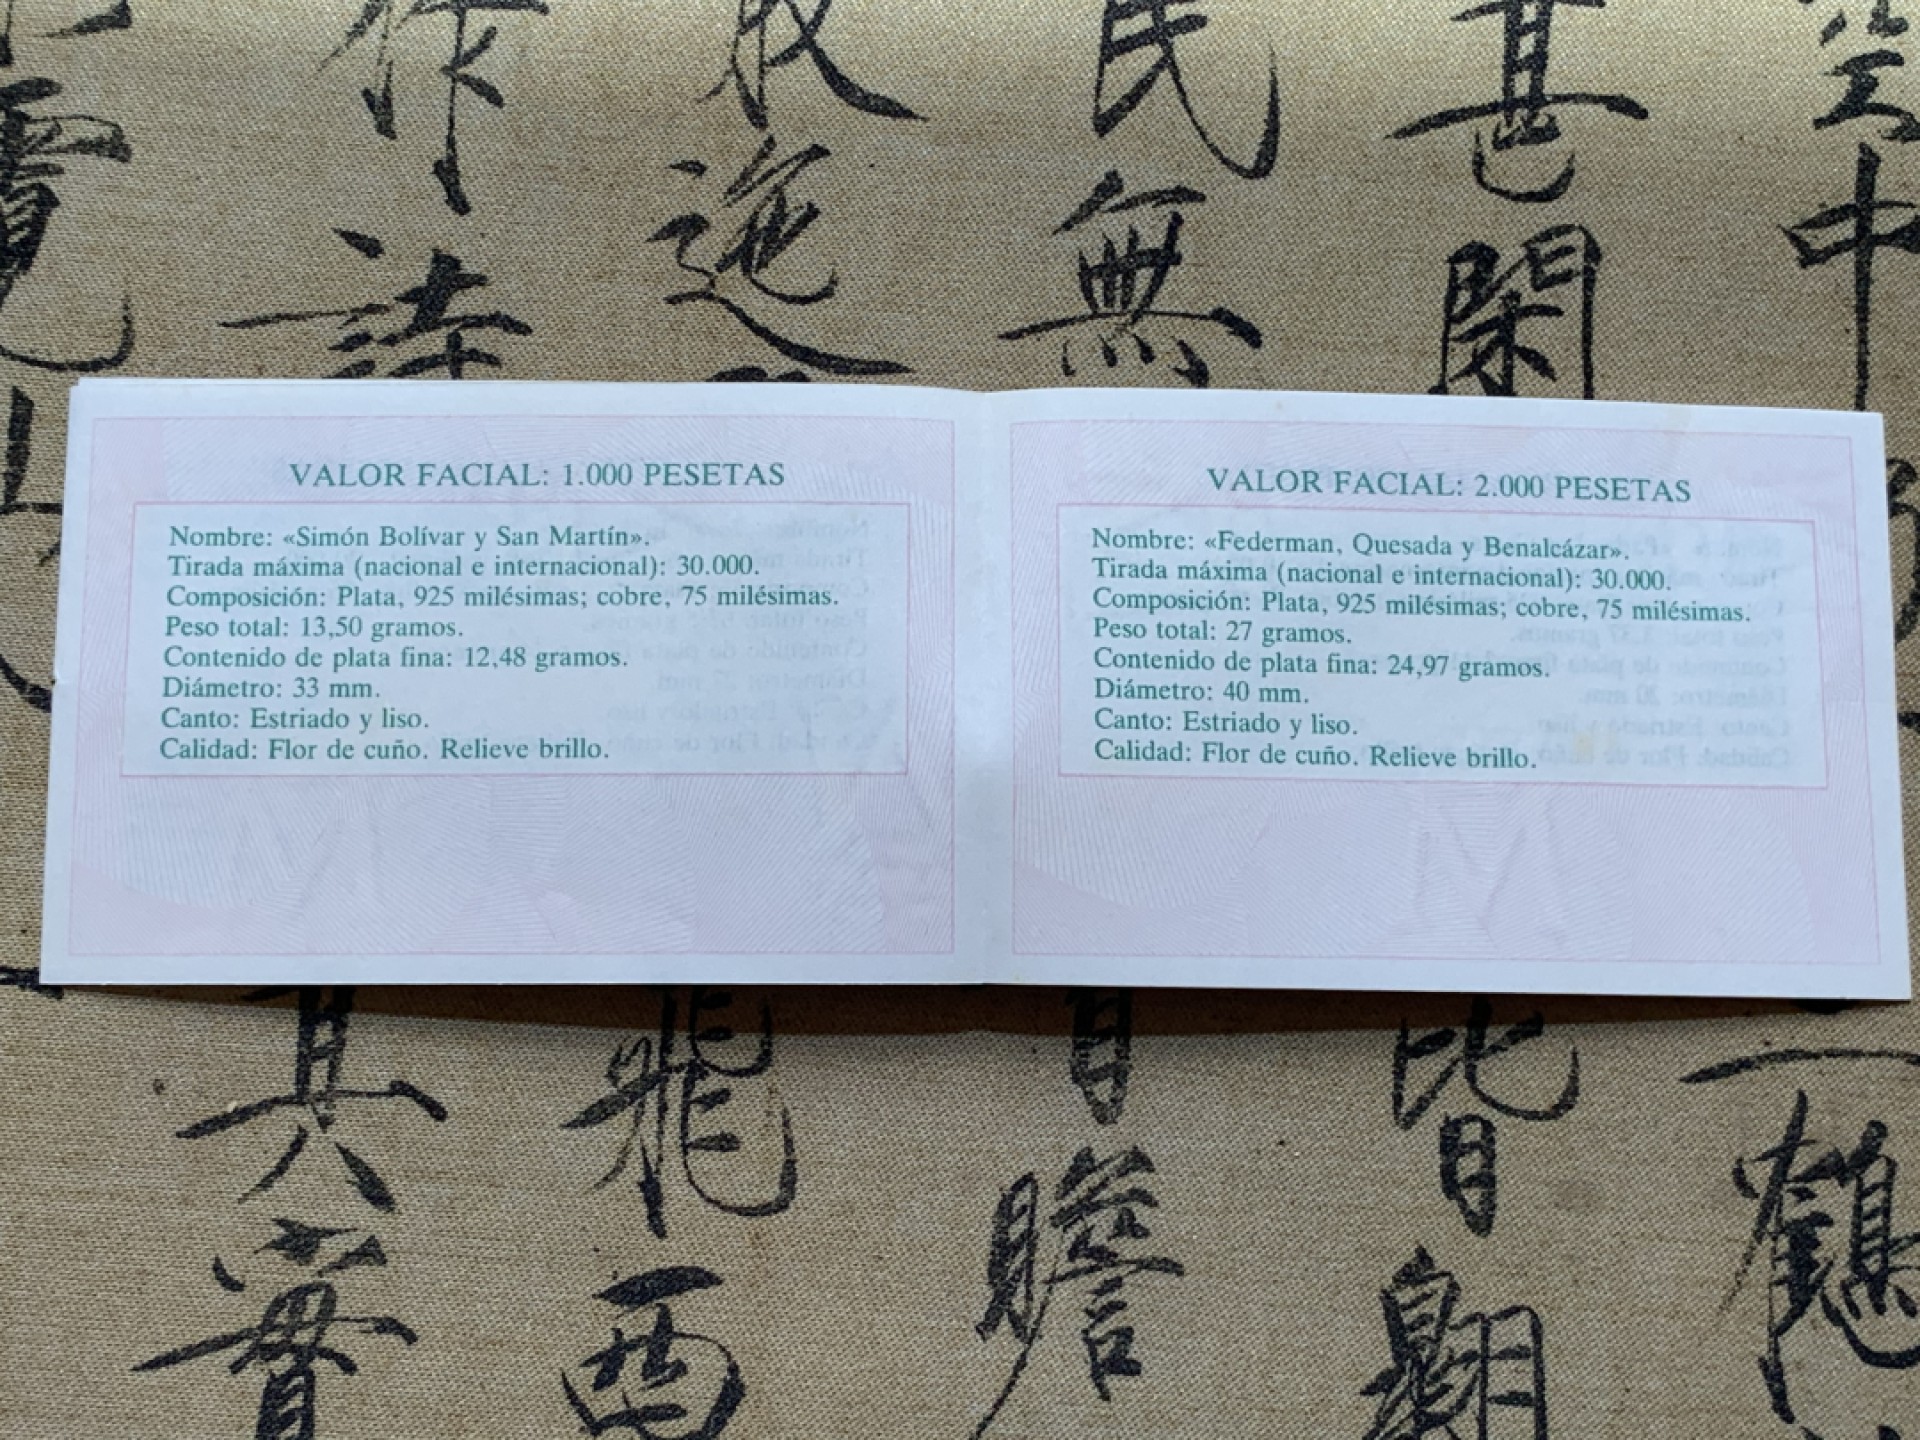 VALOR FACIAL: 1.000 PESETAS
Nombre: «Simón Bolívar y San Martín».
Tirada máxima (nacional e internacional): 30.000.
Composición: Plata, 925 milésimas; cobre, 75 milésimas.
Peso total: 13,50 gramos.
Contenido de plata fina: 12,48 gramos.
Diámetro: 33 mm.
Canto: Estriado y liso.
Calidad: Flor de cuño. Relieve brillo.
VALOR FACIAL: 2.000 PESETAS
Nombre: «Federman, Quesada y Benalcázar».
Tirada máxima (nacional e internacional): 30.000.
Composición: Plata, 925 milésimas; cobre, 75 milésimas.
Peso total: 27 gramos.
Contenido de plata fina: 24,97 gramos.
Diámetro: 40 mm.
Canto: Estriado y liso.
Calidad: Flor de cuño. Relieve brillo.
空中
甚閑
民無
作詩
皆翱
瞻
飛西
其實
一鶴